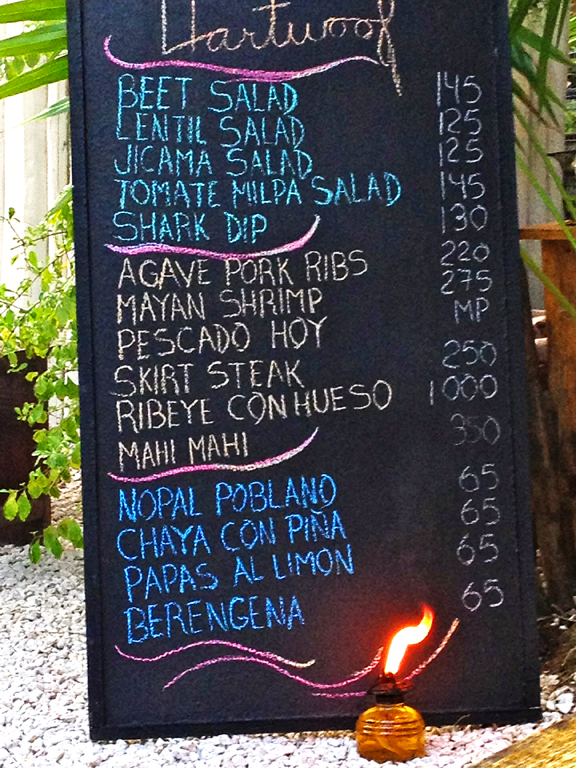 Hartwood
BEET SALAD 145
LENTIL SALAD 125
JICAMA SALAD 125
TOMATE MILPA SALAD 145
SHARK DIP 130
AGAVE PORK RIBS 220
MAYAN SHRIMP 275
PESCADO HOY MP
SKIRT STEAK 250
RIBEYE CON HUESO 1000
MAHI MAHI 350
NOPAL POBLANO 65
CHAYA CON PIÑA 65
PAPAS AL LIMON 65
BERENGENA 65